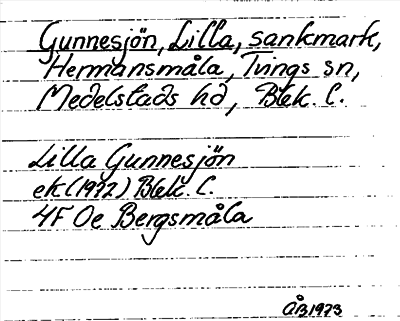 Gunnesjön, Lilla, sankmark,
Hermansmåla, Tvings sn,
Medelstads hd, Blek. l.
Lilla Gunnesjön
ek (1972) Blek. l.
4F 0e Bergsmåla
ÅB 1973